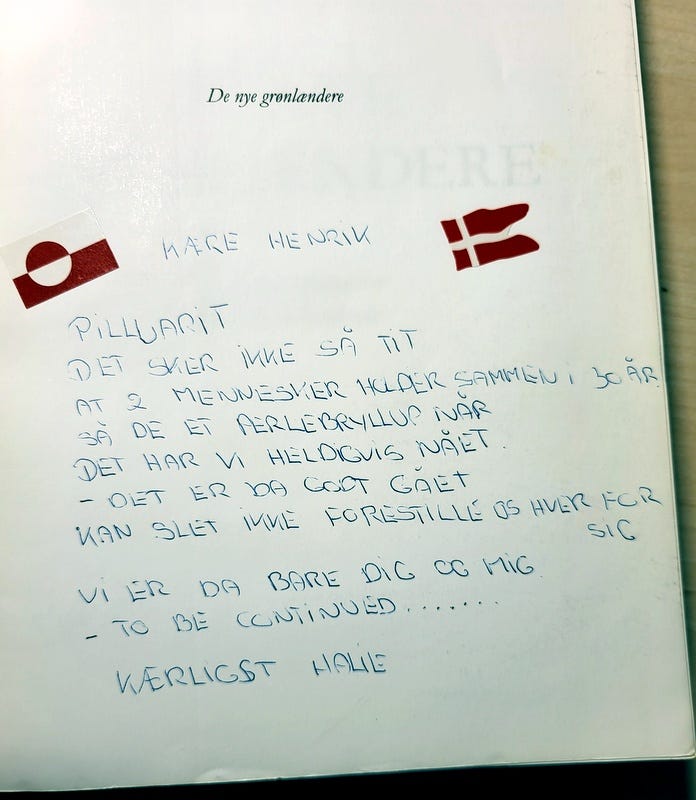 De nye grønlændere
KÆRE HENRIK
PILLUARIT
DET SKER IKKE SÅ TIT
AT 2 MENNESKER HOLDER SAMMEN I 30 ÅR
SÅ DE ET PERLEBRYLLUP NÅR
DET HAR VI HELDIGVIS NÅET.
- DET ER DA GODT GÅET
KAN SLET IKKE FORESTILLE OS HVER FOR
SIG
VI ER DA BARE DIG OG MIG
- TO BE CONTINUED.......
KÆRLIGST